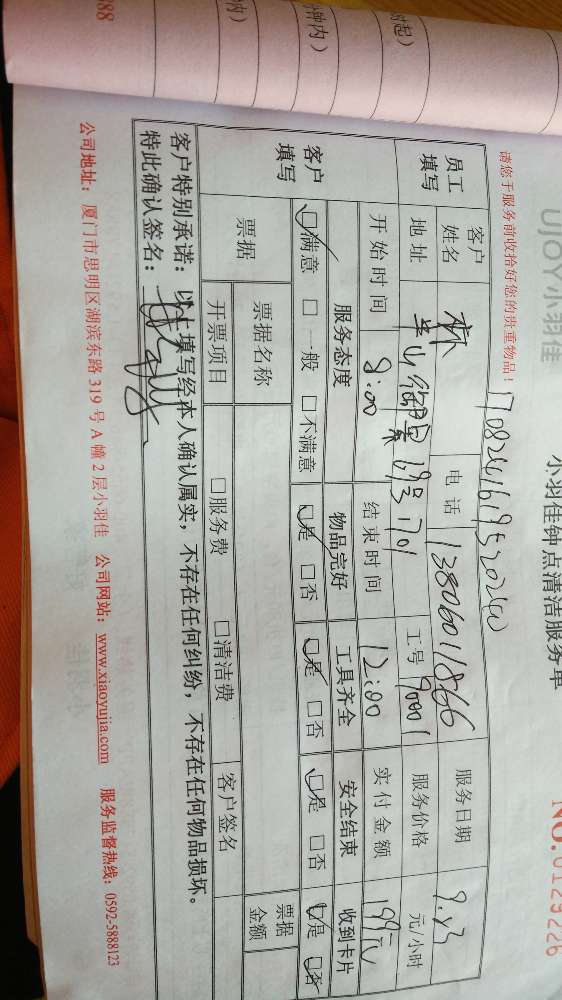 UJOY小羽佳
小羽佳钟点清洁服务单
NO.0129226
请您于服务前收拾好您的贵重物品！
员工填写
客户姓名 林 电话 13806011866 服务日期 9.13
地址 半山御景 号701 工号 90001 服务价格 元/小时
开始时间 8:00 结束时间 12:00 实付金额 199元
客户填写
服务态度 物品完好 工具齐全 安全结束 收到卡片
☑满意 □一般 □不满意 ☑是 □否 ☑是 □否 ☑是 □否 ☑是 ☑否
票据 票据名称 票据金额
开票项目 □服务费 □清洁费 客户签名
客户特别承诺：以上填写经本人确认属实，不存在任何纠纷，不存在任何物品损坏。
特此确认签名：
公司地址：厦门市思明区湖滨东路319号A幢2层小羽佳 公司网站：www.xiaoyujia.com 服务监督热线：0592-5888123
时起）
钟内）
内）
888